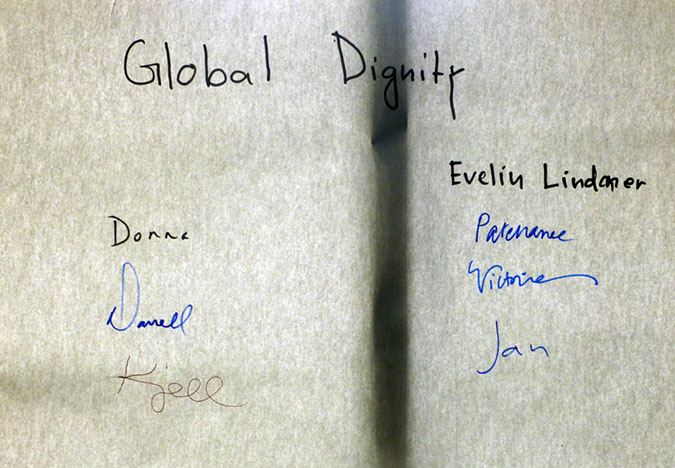 Global Dignity
Evelin Lindaner
Donna
Darrell
Kjell
Victoria
Jan